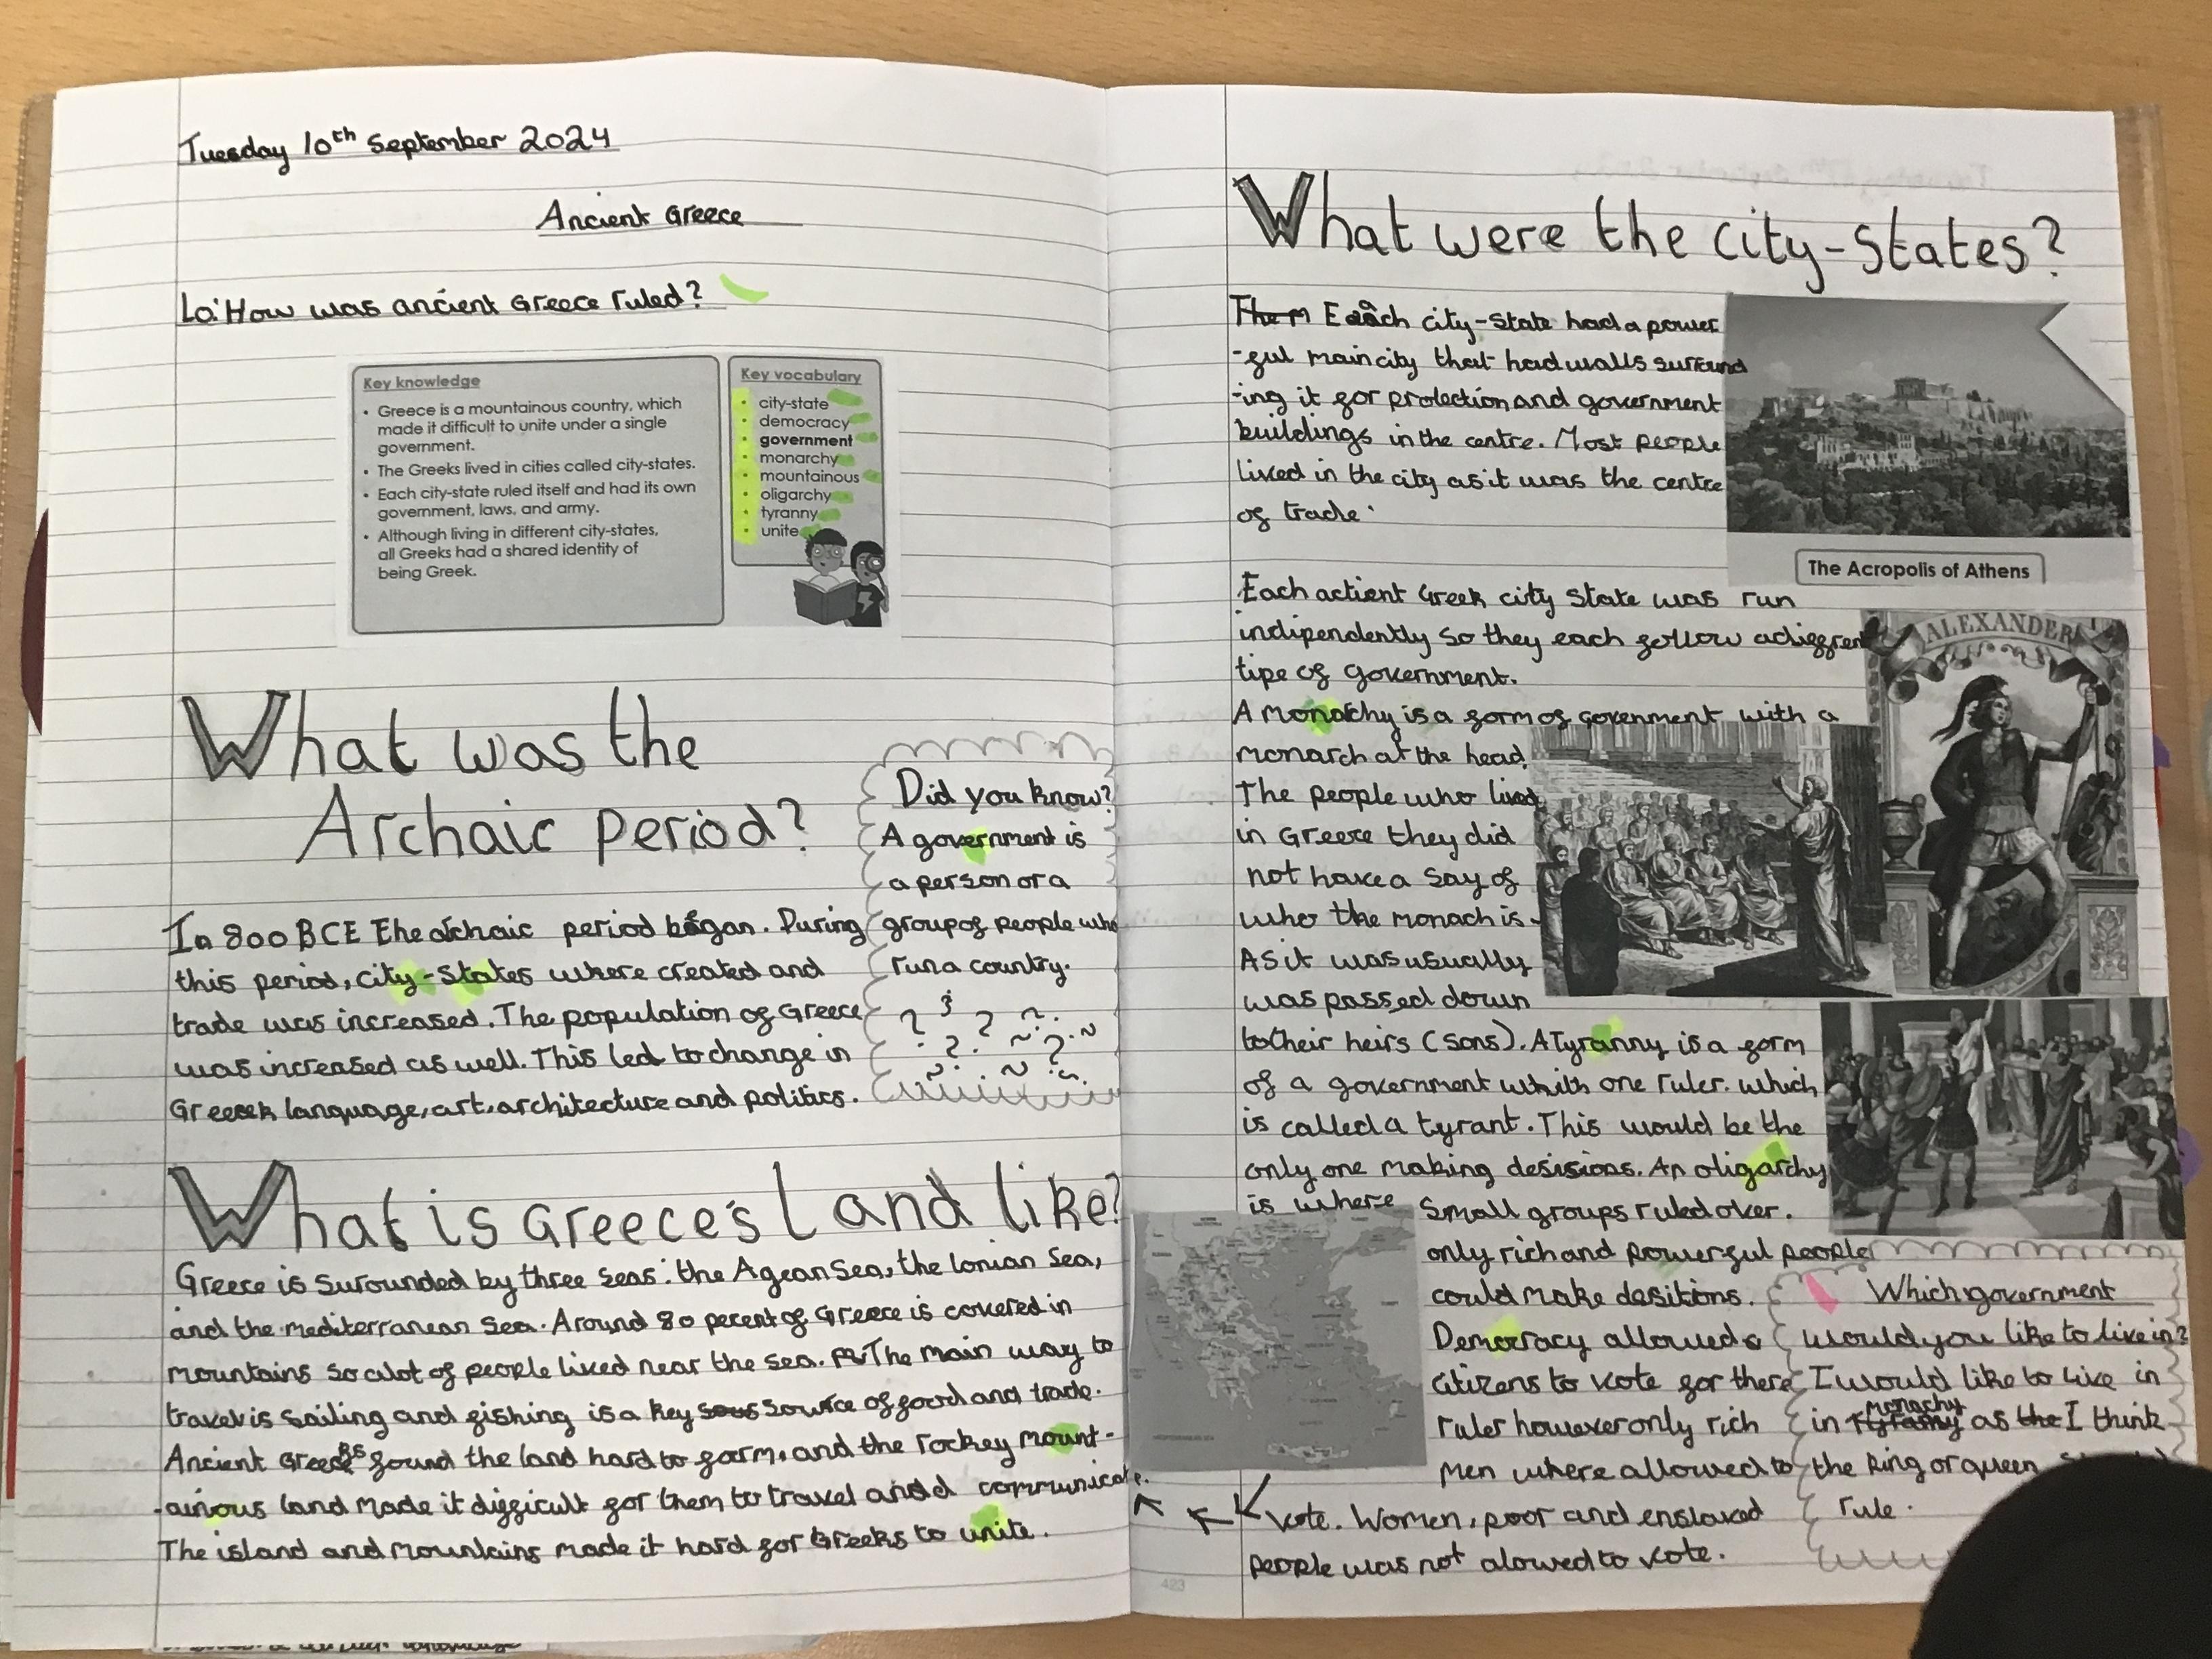 Tuesday 10th September 2024
Ancient Greece
Lo: How was ancient Greece ruled?
Key knowledge
• Greece is a mountainous country, which
made it difficult to unite under a single
government.
• The Greeks lived in cities called city-states.
• Each city-state ruled itself and had its own
government, laws, and army.
• Although living in different city-states,
all Greeks had a shared identity of
being Greek.
Key vocabulary
• city-state
• democracy
• government
• monarchy
• mountainous
• oligarchy
• tyranny
• unite
What was the
Archaic period?
In 800 BCE the archaic period began. During
this period, city-states where created and
trade was increased. The population of Greece
was increased as well. This led to change in
Greek language, art, architecture and politics.
Did you know?
A government is
a person or a
group of people who
run a country.
What is Greece's Land like?
Greece is surounded by three seas: the Agean Sea, the Ionian Sea,
and the mediterranean Sea. Around 80 pecent of Greece is covered in
mountains so alot of people lived near the sea. The main way to
travel is sailing and fishing is a key source of food and trade.
Ancient Greeks found the land hard to farm, and the rockey mount-
-ainous land made it difficult for them to travel and communicate.
The island and mountains made it hard for Greeks to unite.
What were the city-states?
Them Each city-state had a power
-ful main city that had walls surround
-ing it for protection and government
buildings in the centre. Most people
lived in the city as it was the centre
of trade.
The Acropolis of Athens
Each actient Greek city state was run
indipendently so they each follow a diffrent
tipe of government.
ALEXANDER
A monachy is a form of govenment with a
monarch at the head.
The people who lived
in Greece they did
not have a say of
who the monach is.
As it was usually
was passed down
to their heirs (sons). A Tyranny is a form
of a government whith one ruler. which
is called a tyrant. This would be the
only one making desisions. An oligarchy
is where small groups ruled over.
only rich and powerful people
could make desitions.
Democracy allowed
citizens to vote for there
ruler however only rich
men where allowed to
vote. Women, poor and enslaved
people was not alowed to vote.
Which government
would you like to live in?
I would like to live in
in monachy as the I think
the king or queen
rule.
423